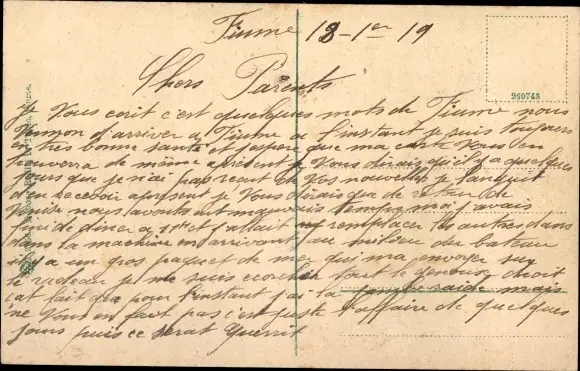 Fiume 18-1er 19
Chers Parents
je vous ecrit c'est quelques mots de Fiume nous
vennon d'arriver a Fiume a l'instant je suis toujours
en très bonne santé et j'espere que ma carte vous en
trouvera de même apresent je vous dirais qu'il y a quelques
jours que je n'ai pas reçut de vos nouvelles je
recevoir apresent je vous dirais que de retour de
Venise nous avons eut mauvais temps moi j'avais
fini de diner a et j'allait remplacer les autres dans
dans la machine en arrivant au milieu du bateau
il y a un gros paquet de mer qui m'a envoyer sur
le radeau je me suis ecorcher tout le genoux droit
cat fait que pour l'instant j'ai la jambe raide mais
ne vous en fait pas c'est juste l'affaire de quelques
jours puis ce serat guerrit
960743